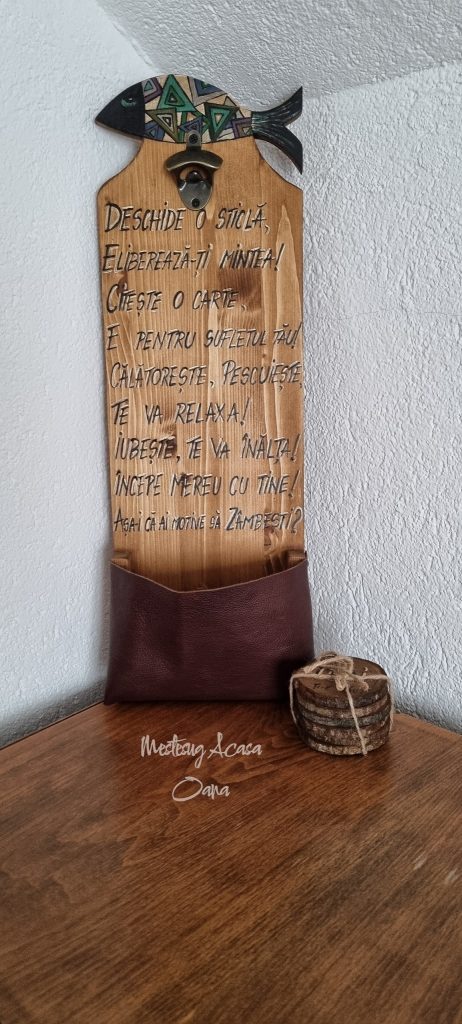 Deschide o sticlă,
Eliberează-ți mintea!
Citește o carte,
E pentru sufletul tău!
Călătorește, Pescuiește,
Te va relaxa!
Iubește, te va înălța!
Începe mereu cu tine!
Așai că ai motive să Zâmbești?
Mestesug Acasa
Oana